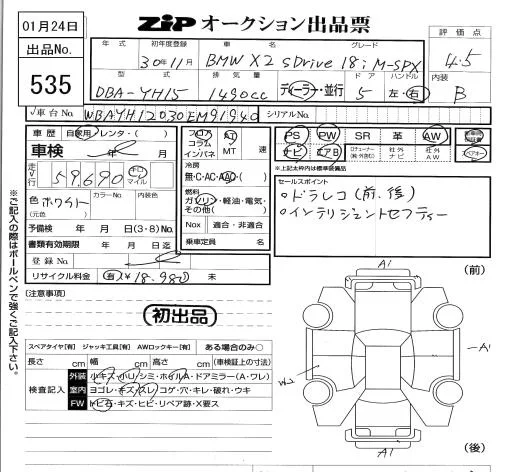 01月24日
出品No.
535
ZiP オークション出品票
年式 初年度登録 車名 グレード
30年11月 BMW X2 sDrive 18i M-SPX
型式 排気量 ドア ハンドル
DBA-YH15 1490cc ディーラー・並行 5 左・右
評価点
4.5
内装
B
車台No. WBAYH12030EM91940 シリアルNo.
車歴 自家用 レンタ・( )
車検 年 月
走行 59,690 キロ マイル
色 ホワイト カラーNo. 内装色
(元色)
予備検 年 月 日(3・8)No.
書類有効期限 年 月 日迄
登録No.
リサイクル料金 有 ¥18,980 未
フロア AT
コラム
インパネ MT 速
冷房
無・C・AC・AAC・( )
燃料
ガソリン・軽油・電気・
その他( )
Nox 適合・非適合
乗車定員 名
PS PW SR 革 AW
ナビ エアB 社外ナビ 社外AW スペアキー
※上記太枠内は標準装備品
セールスポイント
○ドラレコ(前、後)
○インテリジェントセフティー
※ご記入の際はボールペンで強くご記入下さい。
(注意事項)
初出品
スペアタイヤ[有] ジャッキ工具[有] AWロックキー[有] ある場合のみ○
長さ cm 幅 cm 高さ cm (車検証上の寸法)
検査記入
外装 小キズ・小U・シミ・ホイルA・ドアミラー(A・ワレ)
室内 ヨゴレ・キズ・スレ・コゲ・穴・キレ・破れ・ウキ
FW トビ石・キズ・ヒビ・リペア跡・X要ス
A1
(前)
A1
W2
A1
(後)